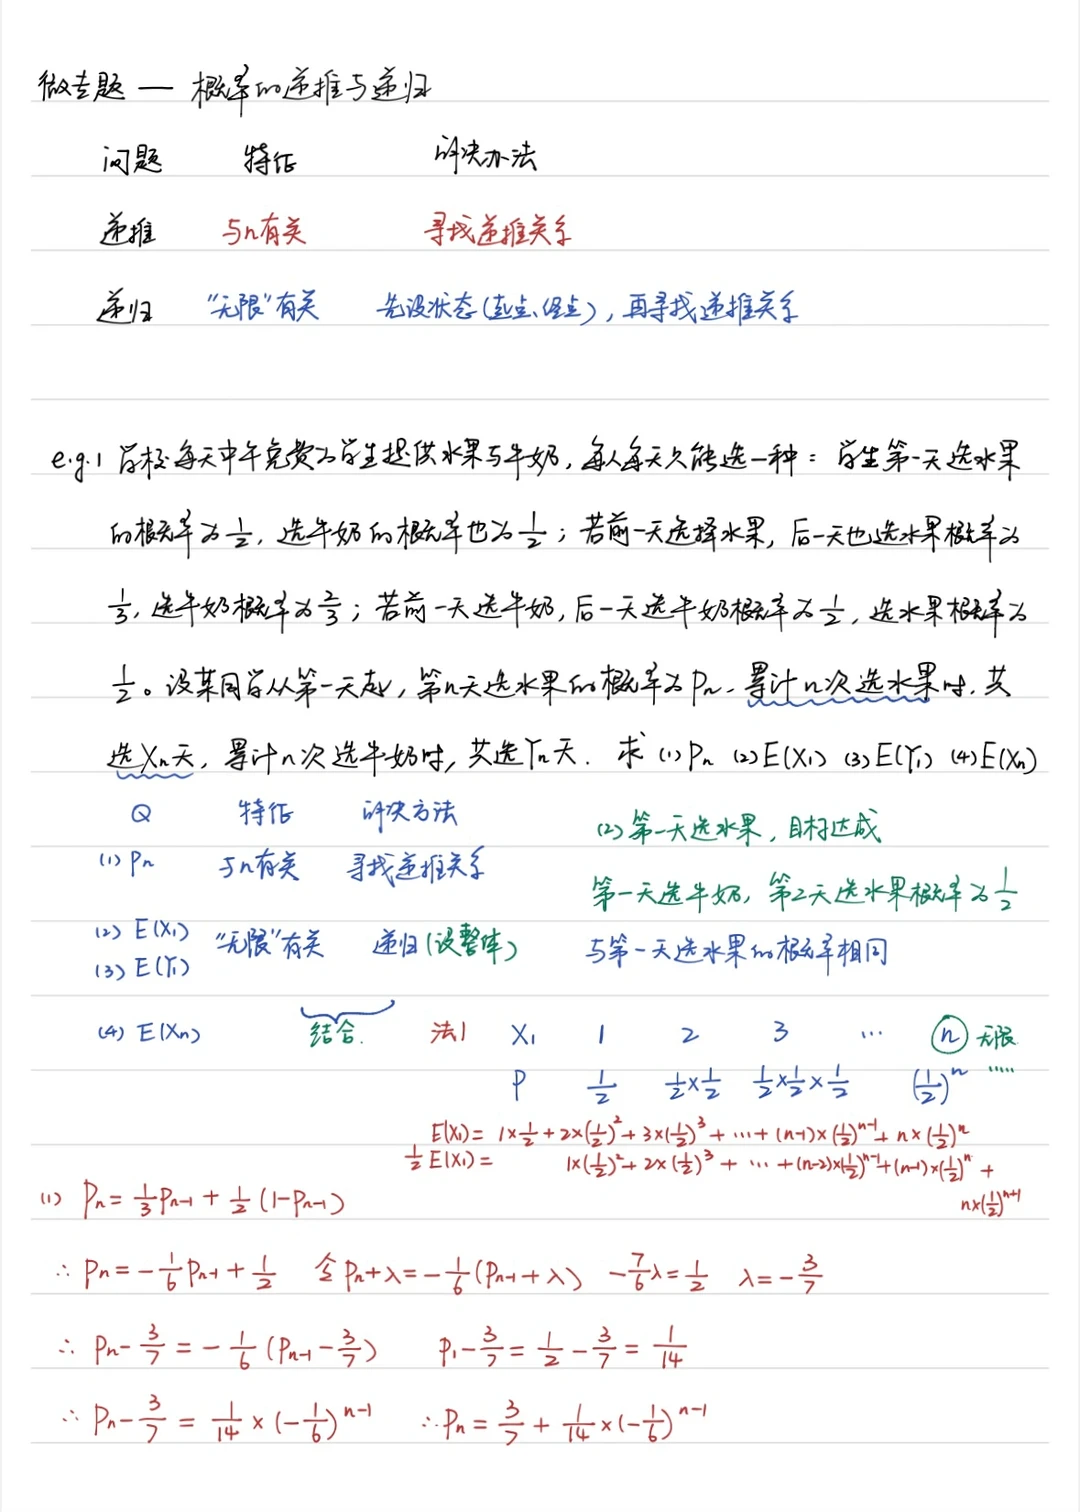 微专题 — 概率的递推与递归
问题 特征 解决办法
递推 与n有关 寻找递推关系
递归 “无限”有关 先设状态(起点、终点)，再寻找递推关系
e.g.1 学校每天中午免费为学生提供水果与牛奶，每人每天只能选一种：学生第一天选水果
的概率为1/2，选牛奶的概率也为1/2；若前一天选择水果，后一天也选水果概率为
1/3，选牛奶概率为2/3；若前一天选牛奶，后一天选牛奶概率为1/2，选水果概率为
1/2。设某同学从第一天起，第n天选水果的概率为Pn，累计n次选水果时，共
选Xn天，累计n次选牛奶时，共选Yn天．求 (1) Pn (2) E(X₁) (3) E(Y₁) (4) E(Xn)
Q 特征 解决方法
(1) Pn 与n有关 寻找递推关系
(2) E(X₁)
(3) E(Y₁) “无限”有关 递归(设整体)
(4) E(Xn) 结合.
(2) 第一天选水果，目标达成
第一天选牛奶，第2天选水果概率为1/2
与第一天选水果的概率相同
法1 X₁ 1 2 3 … n 无限
P 1/2 1/2×1/2 1/2×1/2×1/2 (1/2)^n ……
E(X₁)= 1×1/2+2×(1/2)²+3×(1/2)³+…+(n-1)×(1/2)^(n-1)+n×(1/2)^n
1/2 E(X₁)= 1×(1/2)²+2×(1/2)³+…+(n-2)×(1/2)^(n-1)+(n-1)×(1/2)^n+
n×(1/2)^(n+1)
(1) Pn=1/3Pn-1+1/2(1-Pn-1)
∴ Pn=-1/6Pn-1+1/2 令Pn+λ=-1/6(Pn-1+λ) -7/6λ=1/2 λ=-3/7
∴ Pn-3/7=-1/6(Pn-1-3/7) P₁-3/7=1/2-3/7=1/14
∴ Pn-3/7=1/14×(-1/6)^(n-1) ∴Pn=3/7+1/14×(-1/6)^(n-1)